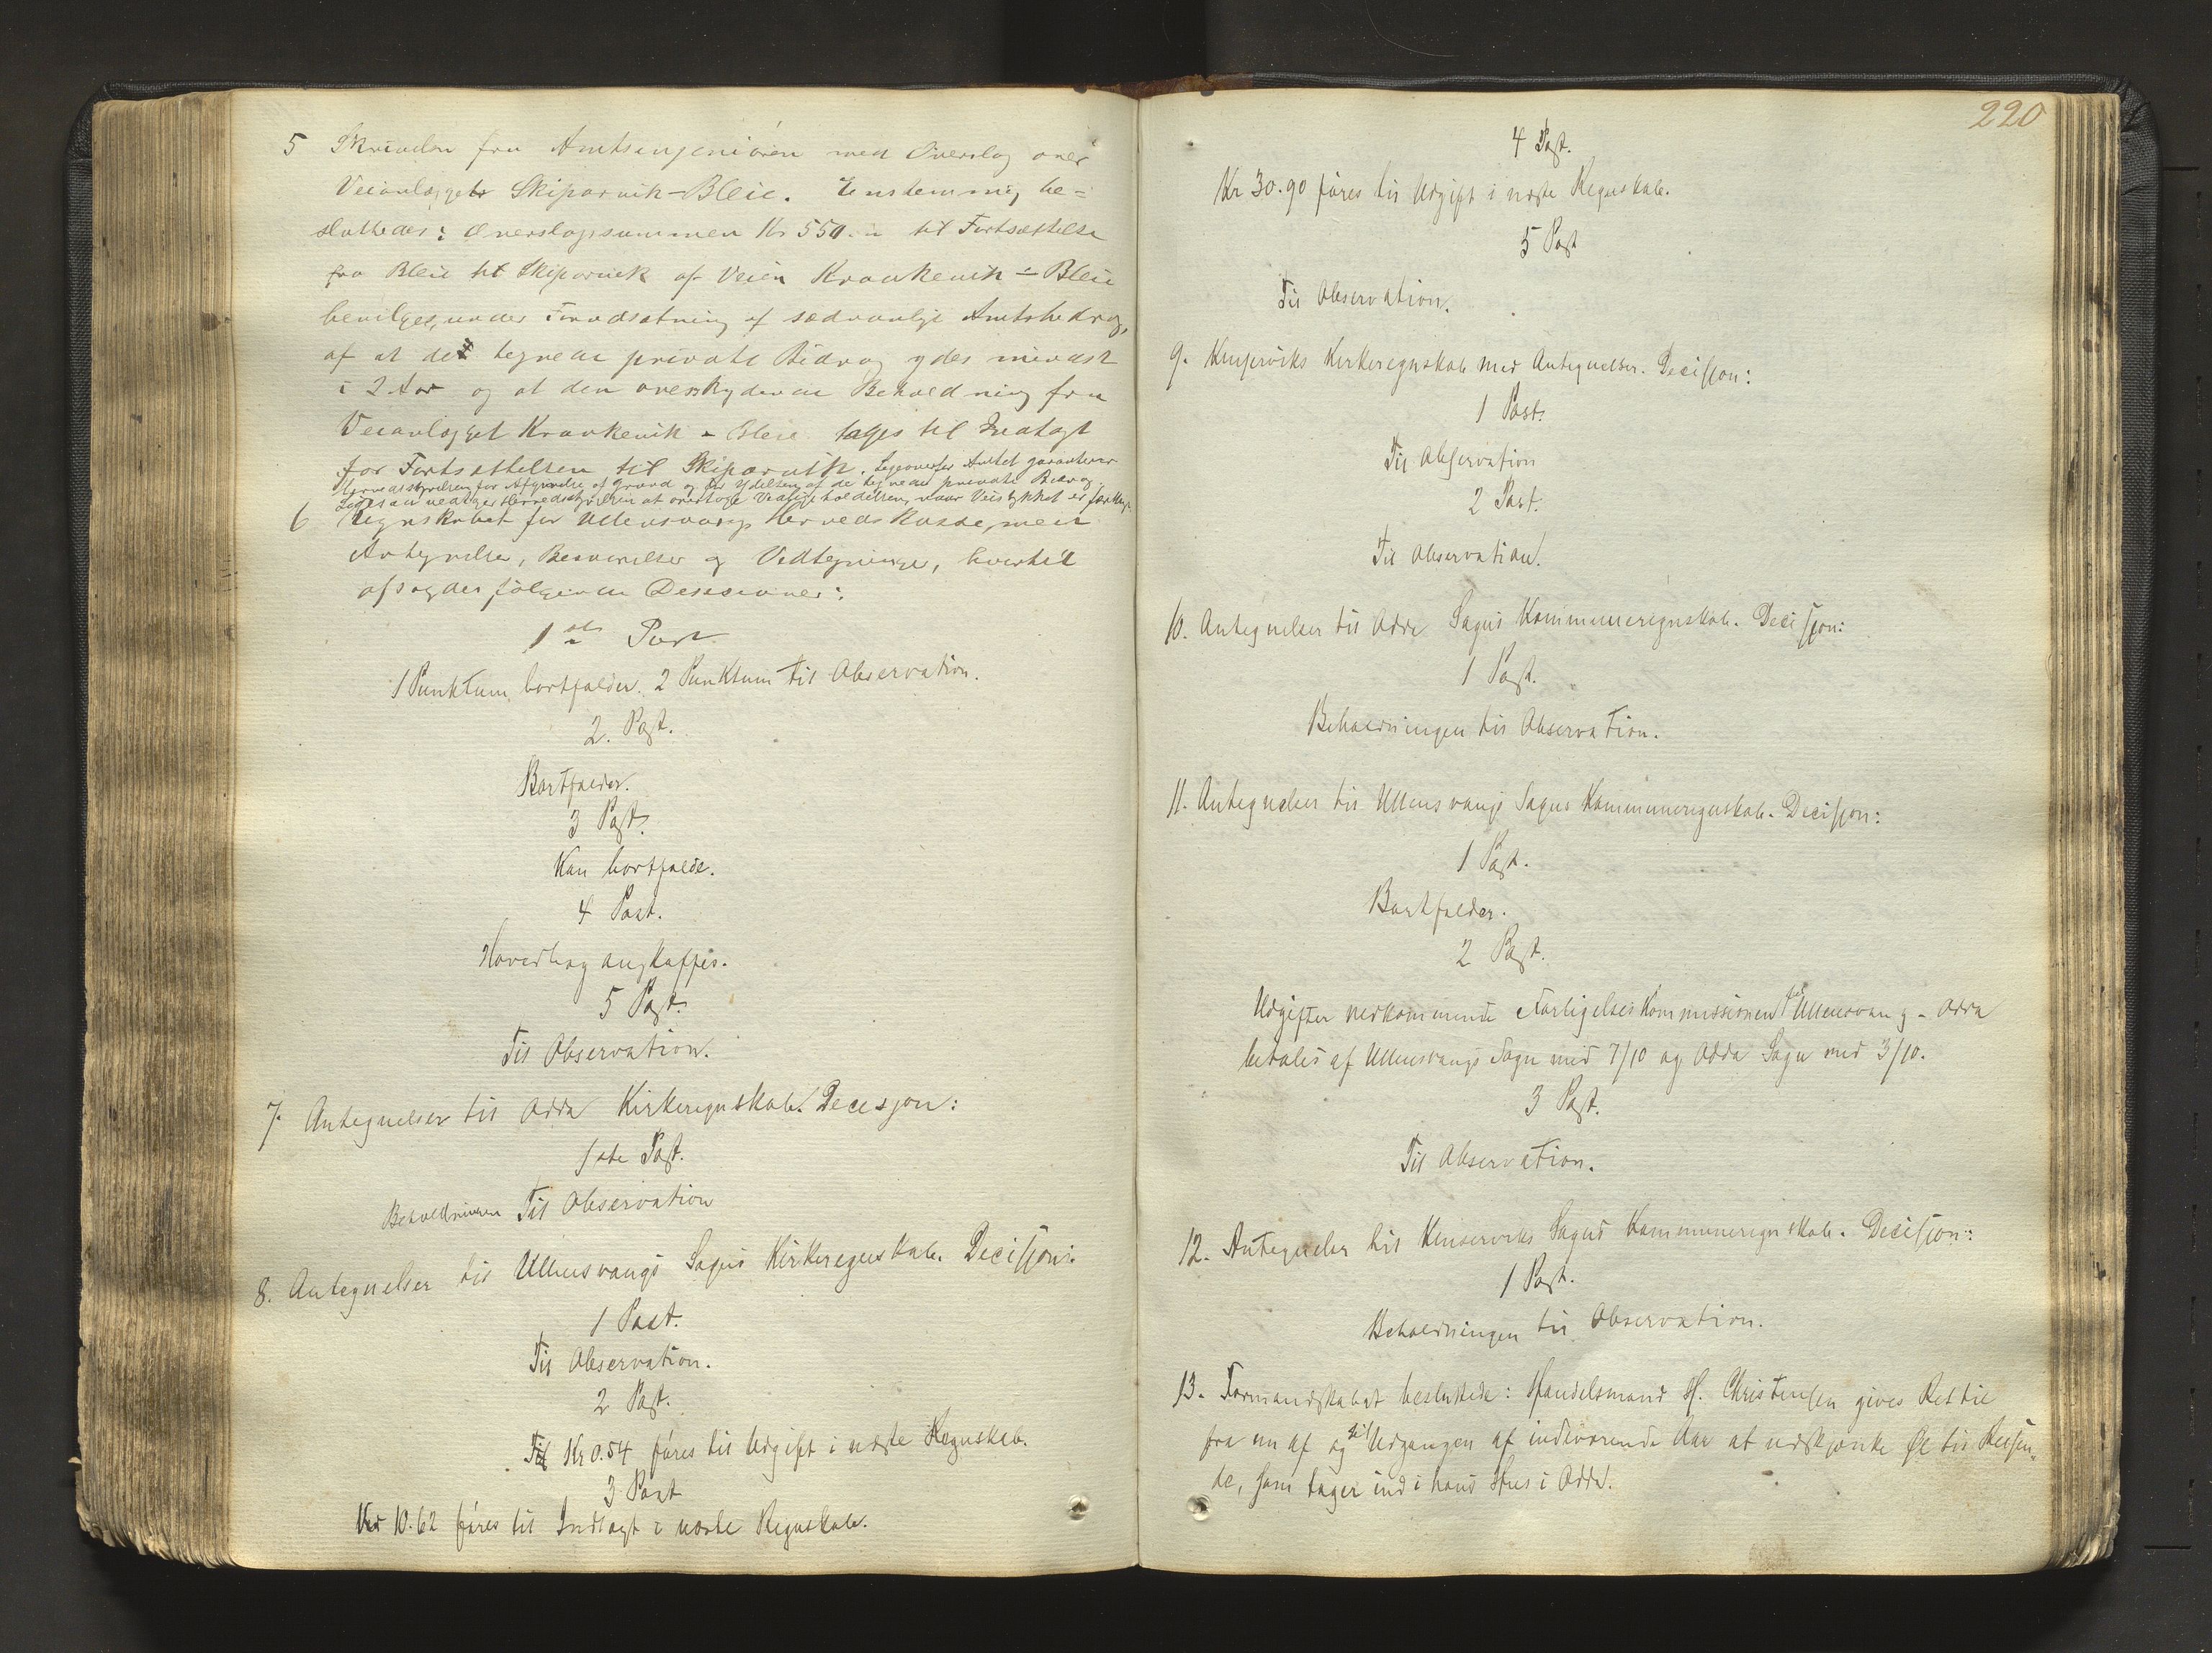 5 Skrivelse fra Amtsingeniören med Overslag over
Veianlægget Skiparvik-Bleie. Enstemmig be-
sluttedes: Overslagssummen Kr 550.- til Fortsættelse
fra Bleie til Skiparvik af Veien Kraakevik - Bleie
bevilges, under Forudsætning af sædvanligt Amtsbidrag,
af at det tegnede private Bidrag ydes mindst
i 2 Aar og at den overskydende Beholdning fra
Veianlægget Kraakevik - Bleie tages til Indtægt
for Fortsættelsen til Skiparvik. Ligeoverfor Amtet garanterer
Herredsstyrelsen for Afgivelse af Grund og for Ydelsen af de tegnede private Bidrag.
Ligesaa vedtager Herredsstyrelsen at overtage Vedligeholdelsen, naar Veistykket er færdigt.
6 Regnskabet for Ullensvangs Herredskasse, med
Antegnelser, Besvarelser og Vedtegninger, hvortil
afsagdes følgende Decisioner:
1ste Post
1 Punktum bortfalder. 2 Punktum til Observation.
2. Post.
Bortfalder.
3 Post.
Kan bortfalde.
4 Post.
Hovedbog anskaffes.
5 Post.
Til Observation.
7. Antegnelser til Odda Kirkeregnskab. Decisjon:
1ste Post.
Beholdningen Til Observation
8. Antegnelser til Ullensvangs Sogns Kirkeregnskab. Decisjon:
1 Post.
Til Observation.
2 Post.
Til Kr 0.54 føres til Udgift i næste Regnskab.
3 Post
10.62 føres til Indtægt i næste Regnskab.
220
4 Post.
Kr 30.90 føres til Udgift i næste Regnskab.
5 Post
Til Observation.
9. Kinserviks Kirkeregnskab med Antegnelser. Decisjon:
1 Post.
Til Observation
2 Post.
Til Observation.
10. Antegnelser til Odda Sogns Kommuneregnskab. Decisjon:
1 Post.
Beholdningen til Observation.
11. Antegnelser til Ullensvangs Sogns Kommuneregnskab. Decisjon:
1 Post.
Bortfalder.
2 Post.
Udgifter vedkommende Forligelseskommissionen for Ullensvang - Odda
betales af Ullensvangs Sogn med 7/10 og Odda Sogn med 3/10.
3 Post.
Til Observation.
12. Antegnelser til Kinserviks Sogns Kommuneregnskab. Decisjon:
1 Post.
Beholdningen til Observation.
13. Formandskabet besluttede: Handelsmand H. Christensen gives Ret til
fra nu af og til Udgangen af indeværende Aar at udskjænke Øl til Reisen-
de, som tager ind i hans Hus i Odda.